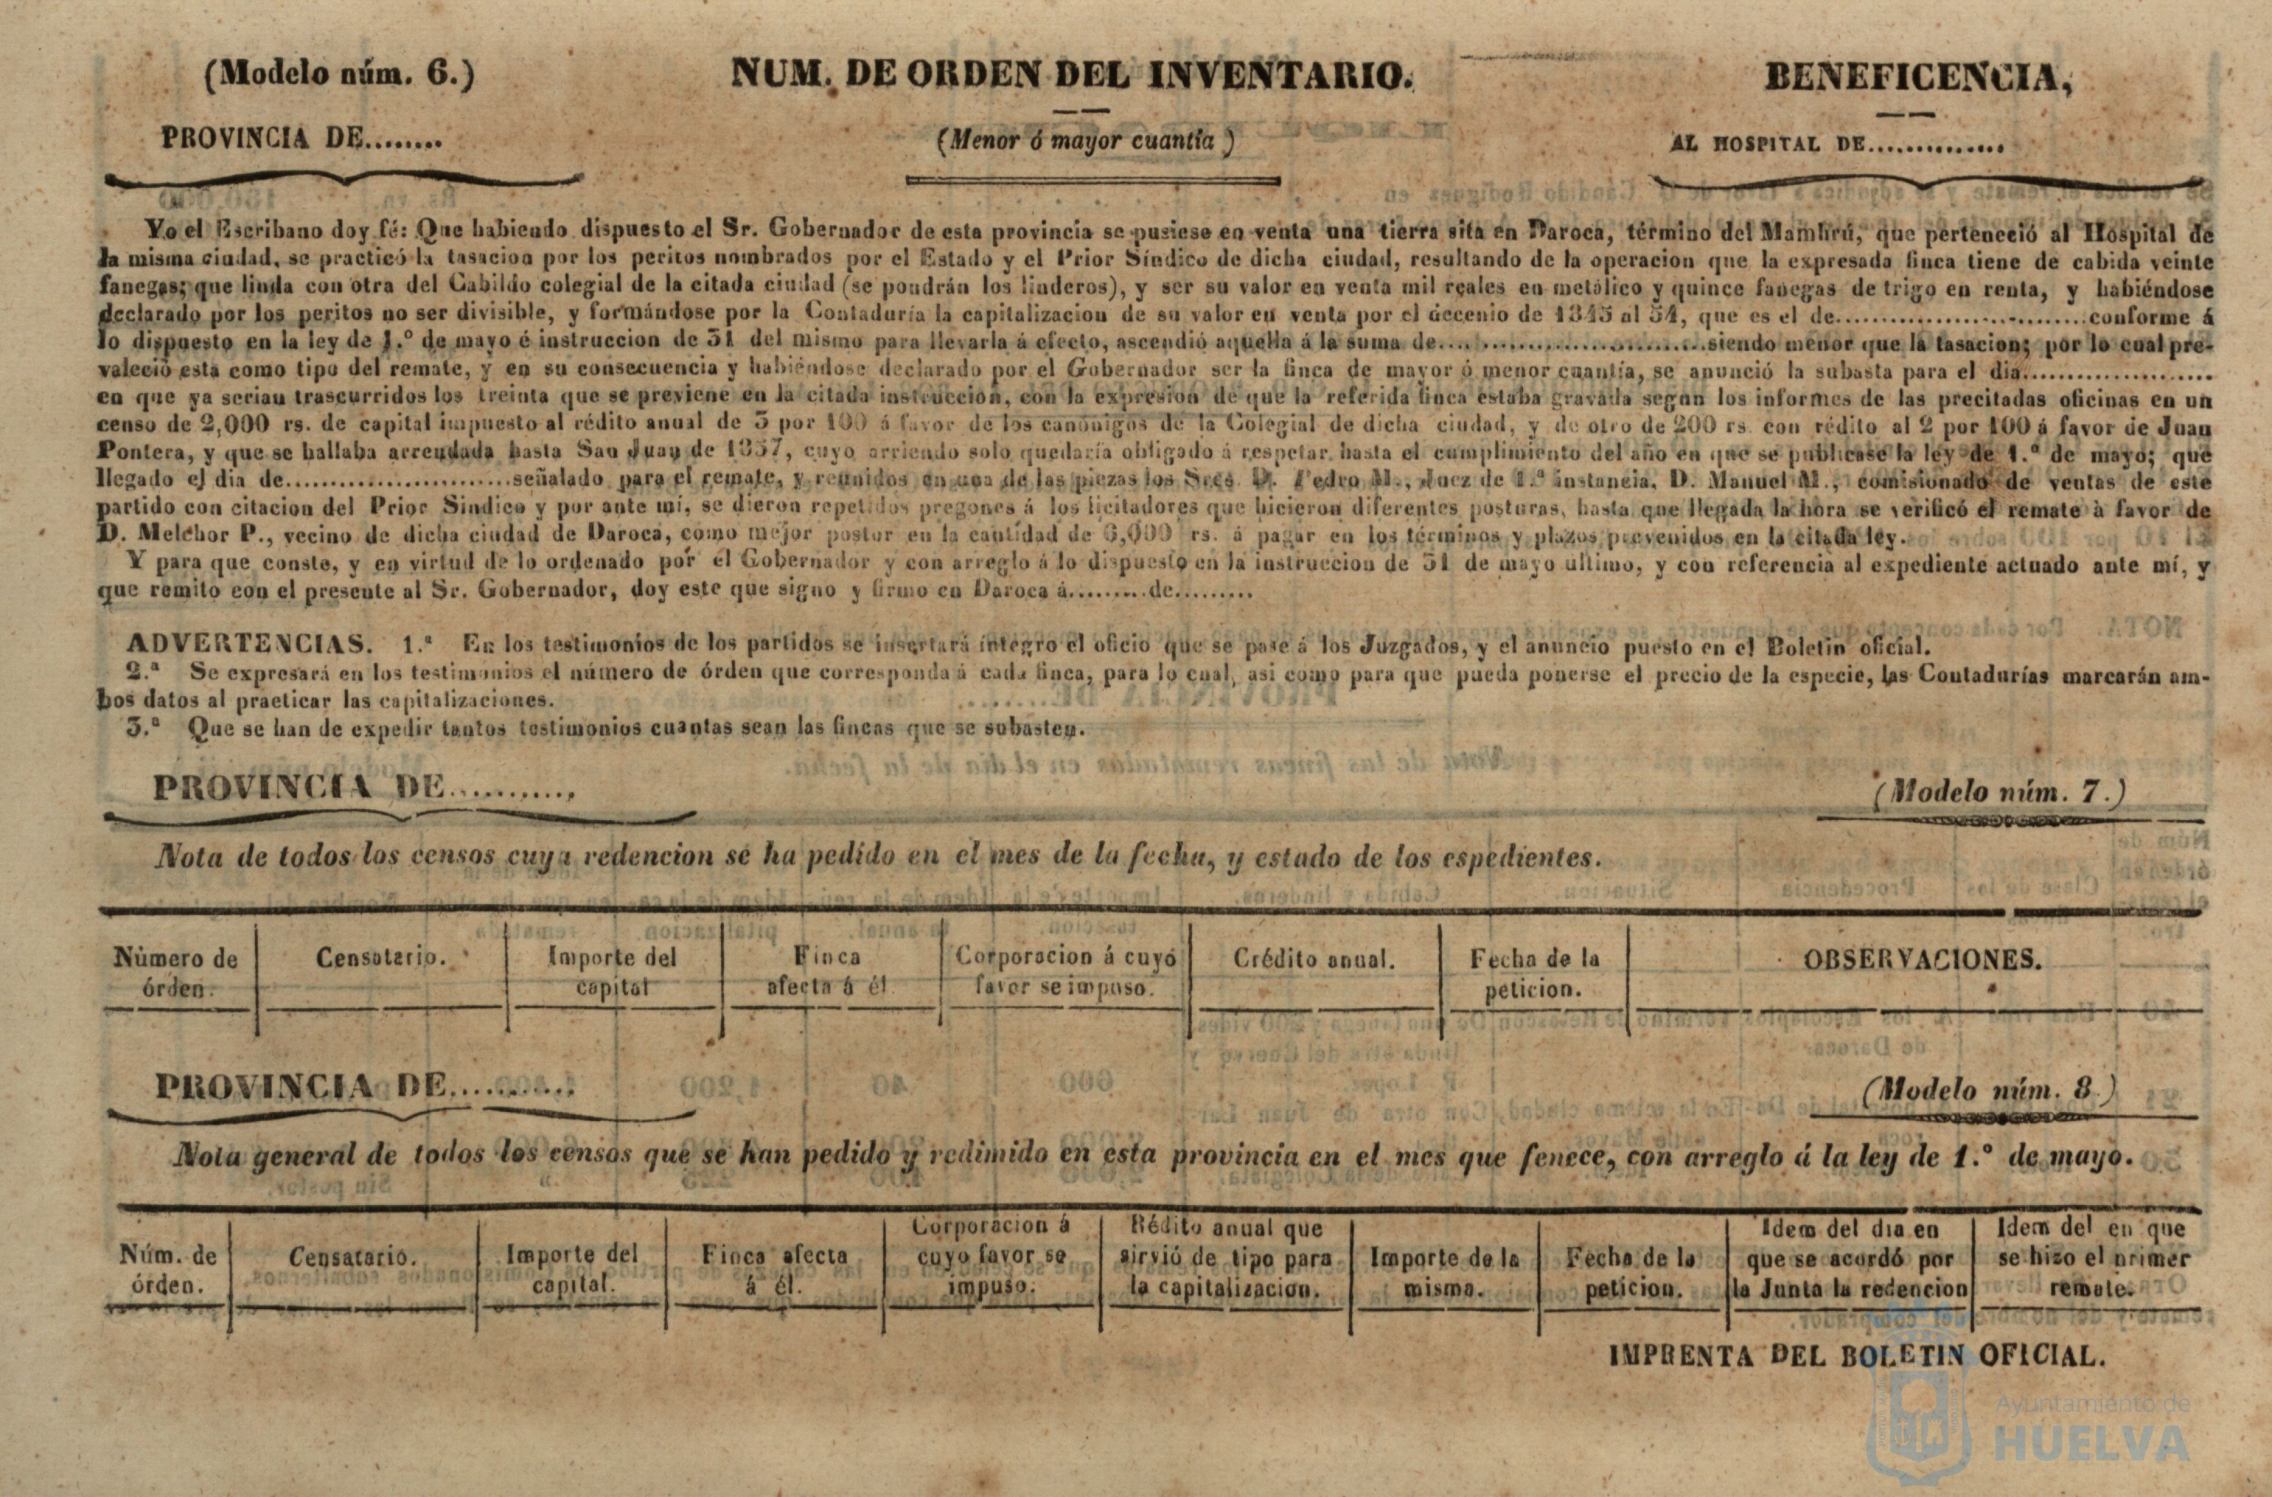 (Modelo núm. 6.)
NUM. DE ORDEN DEL INVENTARIO.
BENEFICENCIA,
PROVINCIA DE........
(Menor ó mayor cuantía)
AL HOSPITAL DE..............
Yo el Escribano doy fé: Que habiendo dispuesto el Sr. Gobernador de esta provincia se pusiese en venta una tierra sita en Daroca, término del Mambrú, que perteneció al Hospital de
la misma ciudad, se practicó la tasacion por los peritos nombrados por el Estado y el Prior Síndico de dicha ciudad, resultando de la operacion que la expresada finca tiene de cabida veinte
fanegas; que linda con otra del Cabildo colegial de la citada ciudad (se pondrán los linderos), y ser su valor en venta mil reales en metálico y quince fanegas de trigo en renta, y habiéndose
declarado por los peritos no ser divisible, y formándose por la Contaduría la capitalizacion de su valor en venta por el decenio de 1845 al 54, que es el de..........................conforme á
lo dispuesto en la ley de 1.º de mayo é instruccion de 31 del mismo para llevarla á efecto, ascendió aquella á la suma de............................siendo menor que la tasacion; por lo cual pre-
valeció esta como tipo del remate, y en su consecuencia y habiéndose declarado por el Gobernador ser la finca de mayor ó menor cuantía, se anunció la subasta para el dia....................
en que ya serian trascurridos los treinta que se previene en la citada instruccion, con la expresion de que la referida finca estaba gravada segun los informes de las precitadas oficinas en un
censo de 2,000 rs. de capital impuesto al rédito anual de 3 por 100 á favor de los canónigos de la Colegial de dicha ciudad, y de otro de 200 rs. con rédito al 2 por 100 á favor de Juan
Pontera, y que se hallaba arrendada hasta San Juan de 1857, cuyo arriendo solo quedaría obligado á respetar hasta el cumplimiento del año en que se publicase la ley de 1.º de mayo; que
llegado el dia de........................señalado para el remate, y reunidos en una de las piezas los Sres. D. Pedro M., Juez de 1.ª instancia, D. Manuel M., comisionado de ventas de este
partido con citacion del Prior Síndico y por ante mí, se dieron repetidos pregones á los licitadores que hicieron diferentes posturas, hasta que llegada la hora se verificó el remate à favor de
D. Melchor P., vecino de dicha ciudad de Daroca, como mejor postor en la cantidad de 6,000 rs. á pagar en los términos y plazos prevenidos en la citada ley.
Y para que conste, y en virtud de lo ordenado por el Gobernador y con arreglo á lo dispuesto en la instruccion de 31 de mayo ultimo, y con referencia al expediente actuado ante mí, y
que remito con el presente al Sr. Gobernador, doy este que signo y firmo en Daroca á.........de.........
ADVERTENCIAS. 1.ª En los testimonios de los partidos se insertará íntegro el oficio que se pase á los Juzgados, y el anuncio puesto en el Boletin oficial.
2.ª Se expresará en los testimonios el número de órden que corresponda á cada finca, para lo cual, asi como para que pueda ponerse el precio de la especie, las Contadurías marcarán am-
bos datos al practicar las capitalizaciones.
3.ª Que se han de expedir tantos testimonios cuantas sean las fincas que se subasten.
PROVINCIA DE..........
(Modelo núm. 7.)
Nota de todos los censos cuya redencion se ha pedido en el mes de la fecha, y estado de los espedientes.
Nùmero de
órden.
Censatario.
Importe del
capital
Finca
afecta á él.
Corporacion á cuyo
favor se impuso.
Crédito anual.
Fecha de la
peticion.
OBSERVACIONES.
PROVINCIA DE..........
(Modelo núm. 8.)
Nota general de todos los censos que se han pedido y redimido en esta provincia en el mes que fenece, con arreglo á la ley de 1.º de mayo.
Núm. de
órden.
Censatario.
Importe del
capital.
Finca afecta
á él.
Corporacion á
cuyo favor se
impuso.
Rédito anual que
sirvió de tipo para
la capitalizacion.
Importe de la
misma.
Fecha de la
peticion.
Idem del dia en
que se acordó por
la Junta la redencion
Idem del en que
se hizo el primer
remate.
IMPRENTA DEL BOLETIN OFICIAL.
Ayuntamiento de
HUELVA